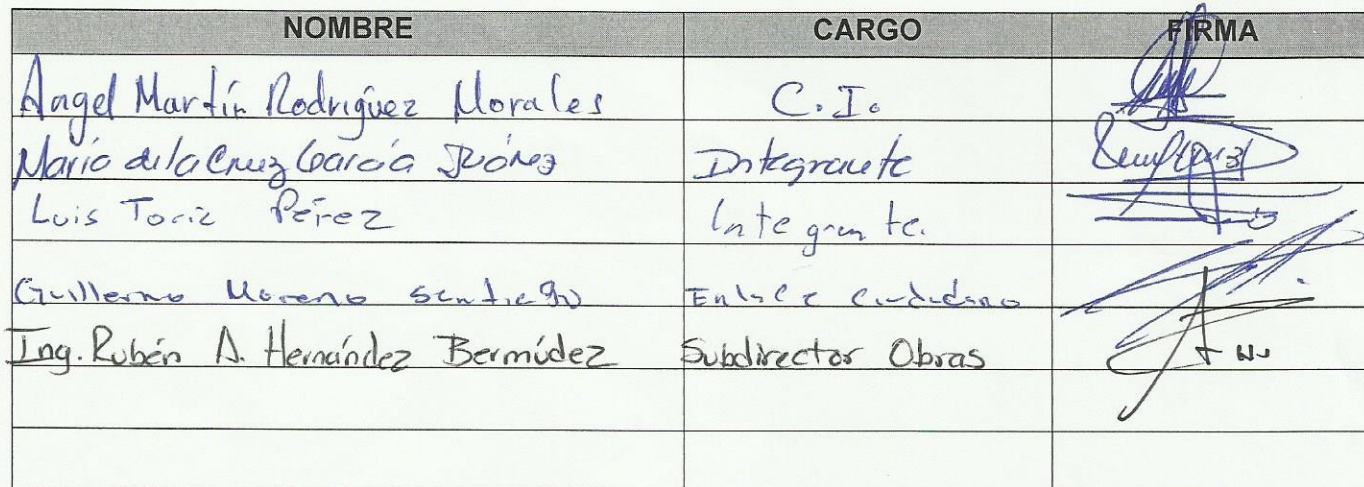 NOMBRE CARGO FIRMA
Angel Martín Rodríguez Morales C.I.
Mario de la Cruz García Integrante
Luis Toriz Pérez Integrante.
Guillermo Moreno Santiago Enlace Ciudadano
Ing. Rubén A. Hernández Bermúdez Subdirector Obras